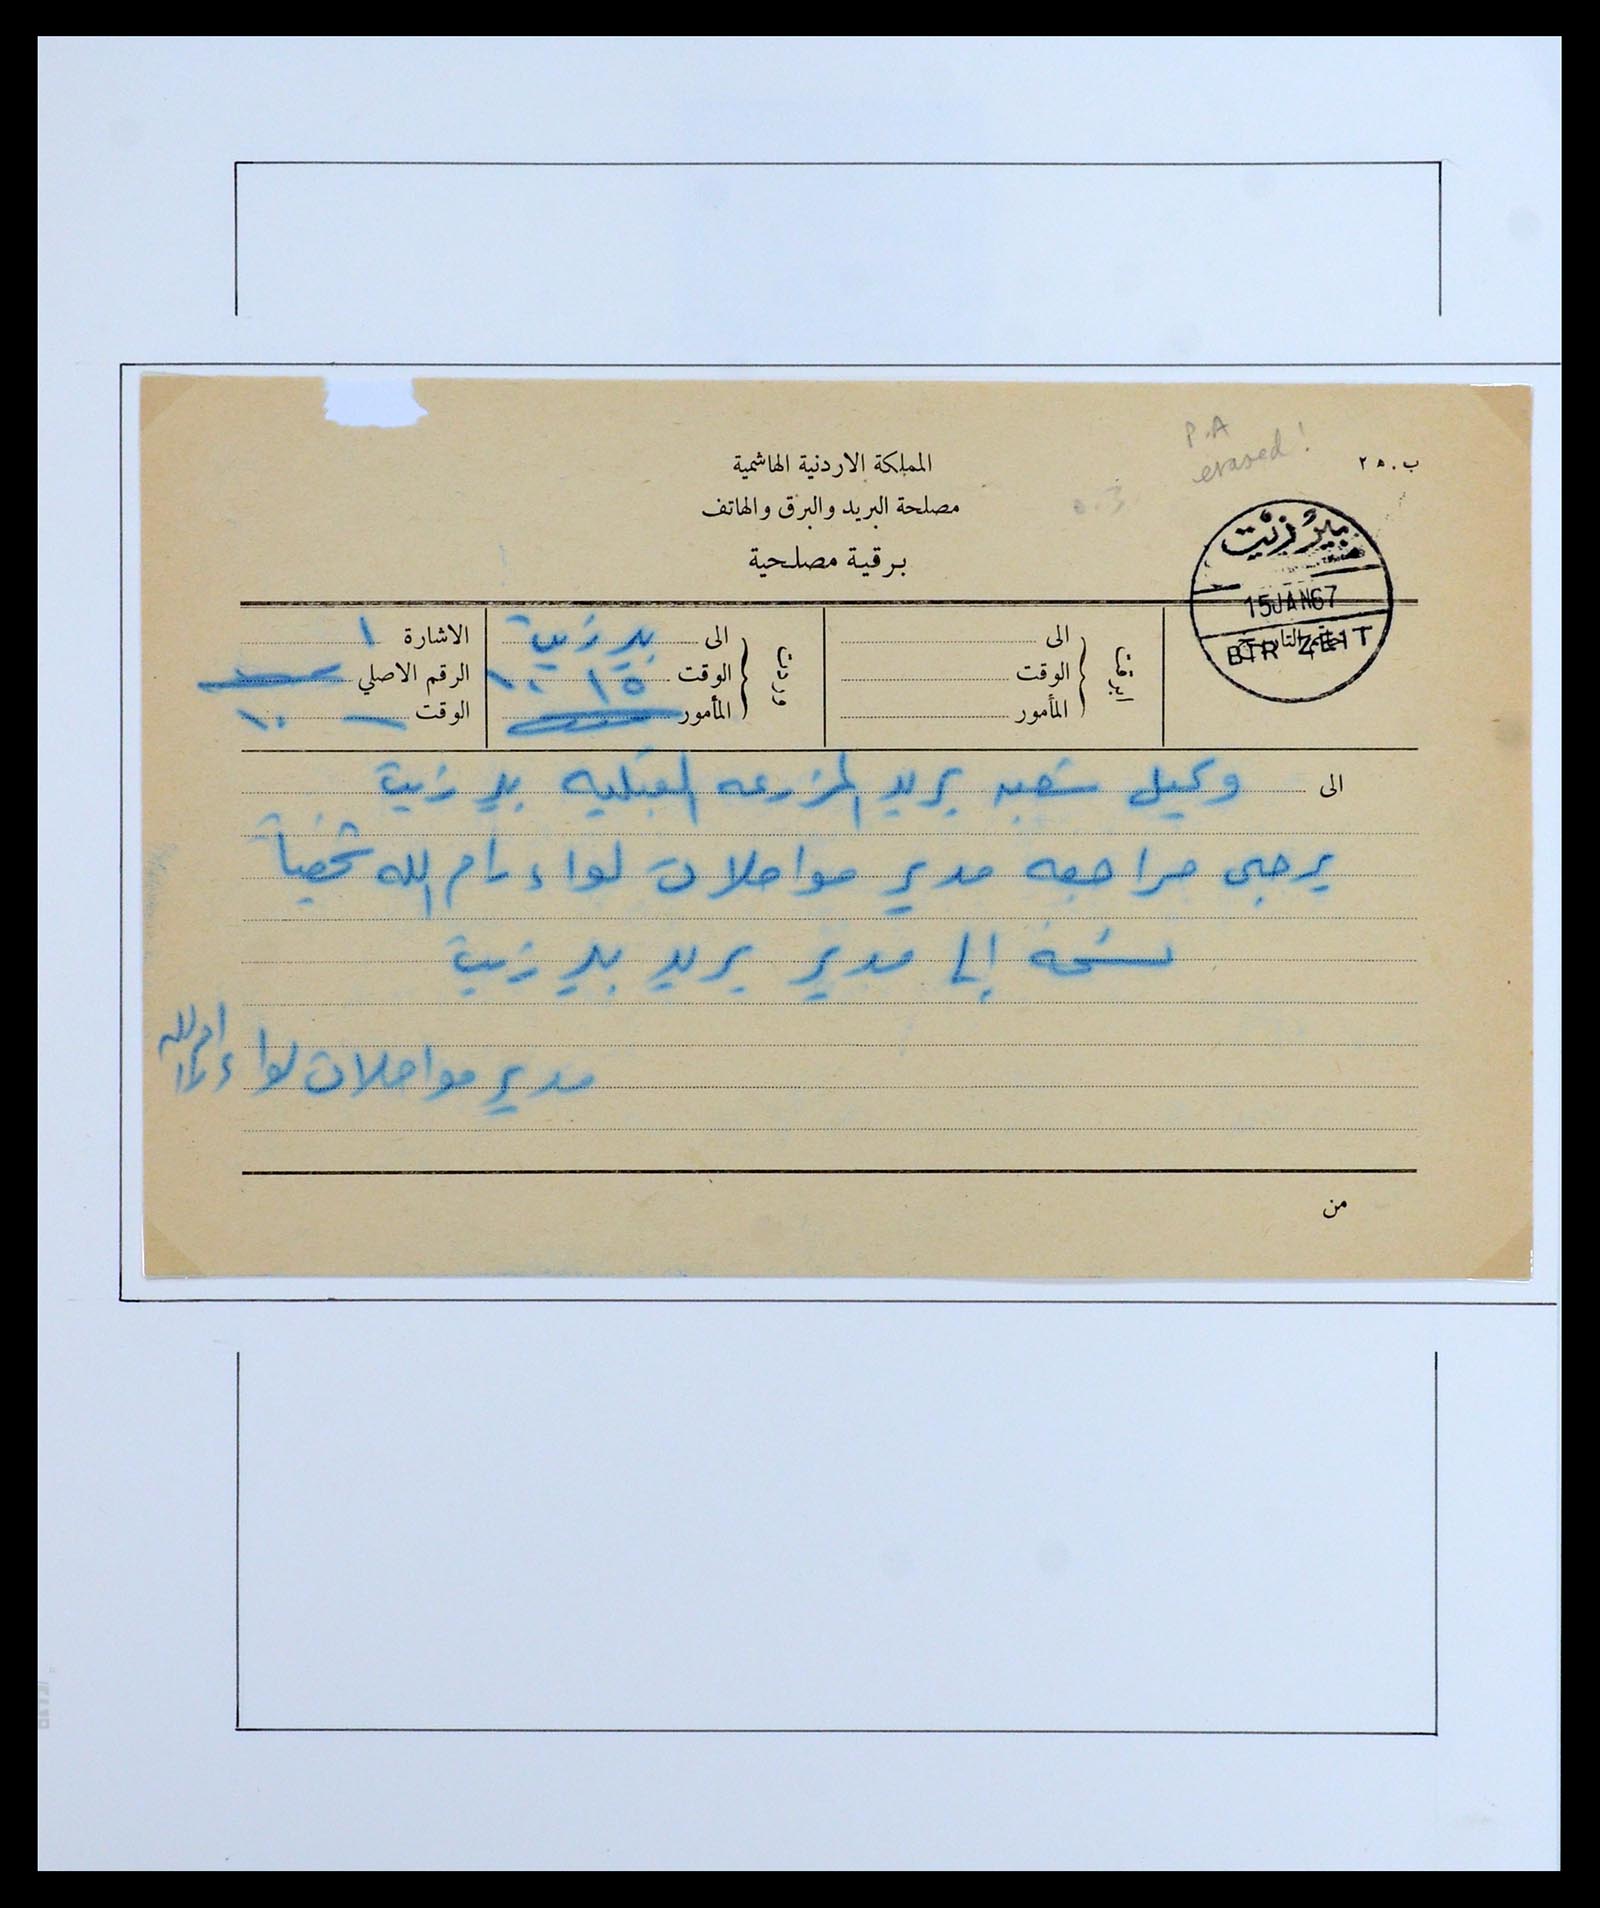 P.A
erased!
ب. ٢٥
المملكة الاردنية الهاشمية
مصلحة البريد والبرق والهاتف
برقية مصلحية
بير زيت
15 JAN 67
BIR ZEIT
ابرقت
الى
الوقت
المأمور
وردت
الى بير زيت
الوقت ١٥ ١٠
المأمور
الاشارة ١
الرقم الاصلي
الوقت ١٠
الى وكيل شعبة بريد المزرعه القبليه بير زيت
يرجى مراجعه مدير مواصلات لواء رام الله شخصياً
نسخة إلى مدير بريد بير زيت
مدير مواصلات لواء رام الله
من